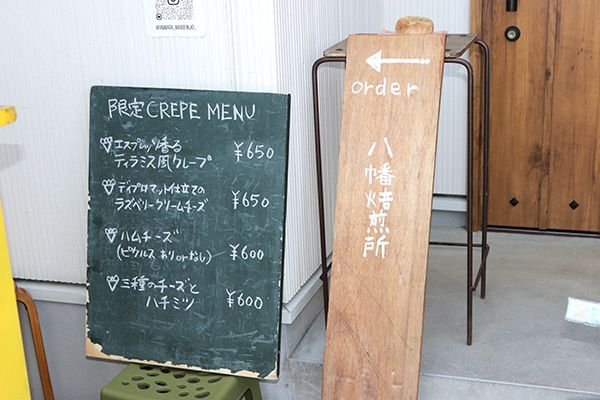 @YAWATA_BAISENJO_
限定CREPE MENU
エスプレッソ香る
ティラミス風クレープ ¥650
ディプロマット仕立ての
ラズベリークリームチーズ ¥650
ハムチーズ
(ピクルス ありorなし) ¥600
三種のチーズと
ハチミツ ¥600
order
八幡焙煎所